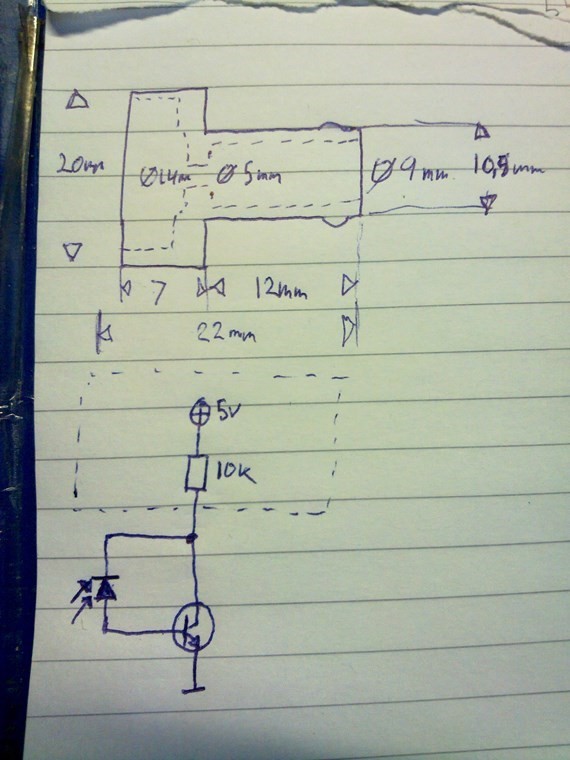 20mm
Ø14m Ø 5mm Ø 9mm 10,5mm
7 12mm
22mm
5v
10k